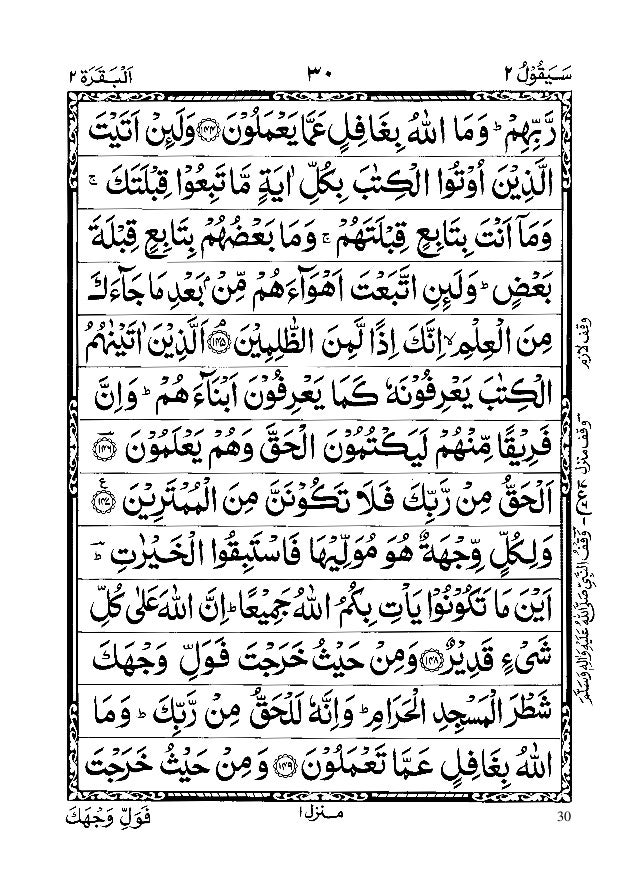 سَيَقُوْلُ ٢ ٣٠ اَلْبَقَرَة ٢
رَّبِّهِمْ ؕ وَمَا اللّٰهُ بِغَافِلٍ عَمَّا يَعْمَلُوْنَ ۝١٤٤ وَلَئِنْ اَتَيْتَ
الَّذِيْنَ اُوْتُوا الْكِتٰبَ بِكُلِّ اٰيَةٍ مَّا تَبِعُوْا قِبْلَتَكَ ۚ
وَمَاۤ اَنْتَ بِتَابِعٍ قِبْلَتَهُمْ ۚ وَمَا بَعْضُهُمْ بِتَابِعٍ قِبْلَةَ
بَعْضٍ ؕ وَلَئِنِ اتَّبَعْتَ اَهْوَآءَهُمْ مِّنْۢ بَعْدِ مَا جَآءَكَ
مِنَ الْعِلْمِ ۙ اِنَّكَ اِذًا لَّمِنَ الظّٰلِمِيْنَ ۝١٤٥ اَلَّذِيْنَ اٰتَيْنٰهُمُ
الْكِتٰبَ يَعْرِفُوْنَهٗ كَمَا يَعْرِفُوْنَ اَبْنَآءَهُمْ ؕ وَاِنَّ
فَرِيْقًا مِّنْهُمْ لَيَكْتُمُوْنَ الْحَقَّ وَهُمْ يَعْلَمُوْنَ ۝١٤٦
اَلْحَقُّ مِنْ رَّبِّكَ فَلَا تَكُوْنَنَّ مِنَ الْمُمْتَرِيْنَ ۝١٤٧ ع
وَلِكُلٍّ وِّجْهَةٌ هُوَ مُوَلِّيْهَا فَاسْتَبِقُوا الْخَيْرٰتِ ؕ
اَيْنَ مَا تَكُوْنُوْا يَاْتِ بِكُمُ اللّٰهُ جَمِيْعًا ؕ اِنَّ اللّٰهَ عَلٰى كُلِّ
شَىْءٍ قَدِيْرٌ ۝١٤٨ وَمِنْ حَيْثُ خَرَجْتَ فَوَلِّ وَجْهَكَ
شَطْرَ الْمَسْجِدِ الْحَرَامِ ؕ وَاِنَّهٗ لَلْحَقُّ مِنْ رَّبِّكَ ؕ وَمَا
اللّٰهُ بِغَافِلٍ عَمَّا تَعْمَلُوْنَ ۝١٤٩ وَمِنْ حَيْثُ خَرَجْتَ
وقف لازم
وقف منزل
وقف النبي صلى الله عليه واله وسلم
30 منزل ١ فَوَلِّ وَجْهَكَ